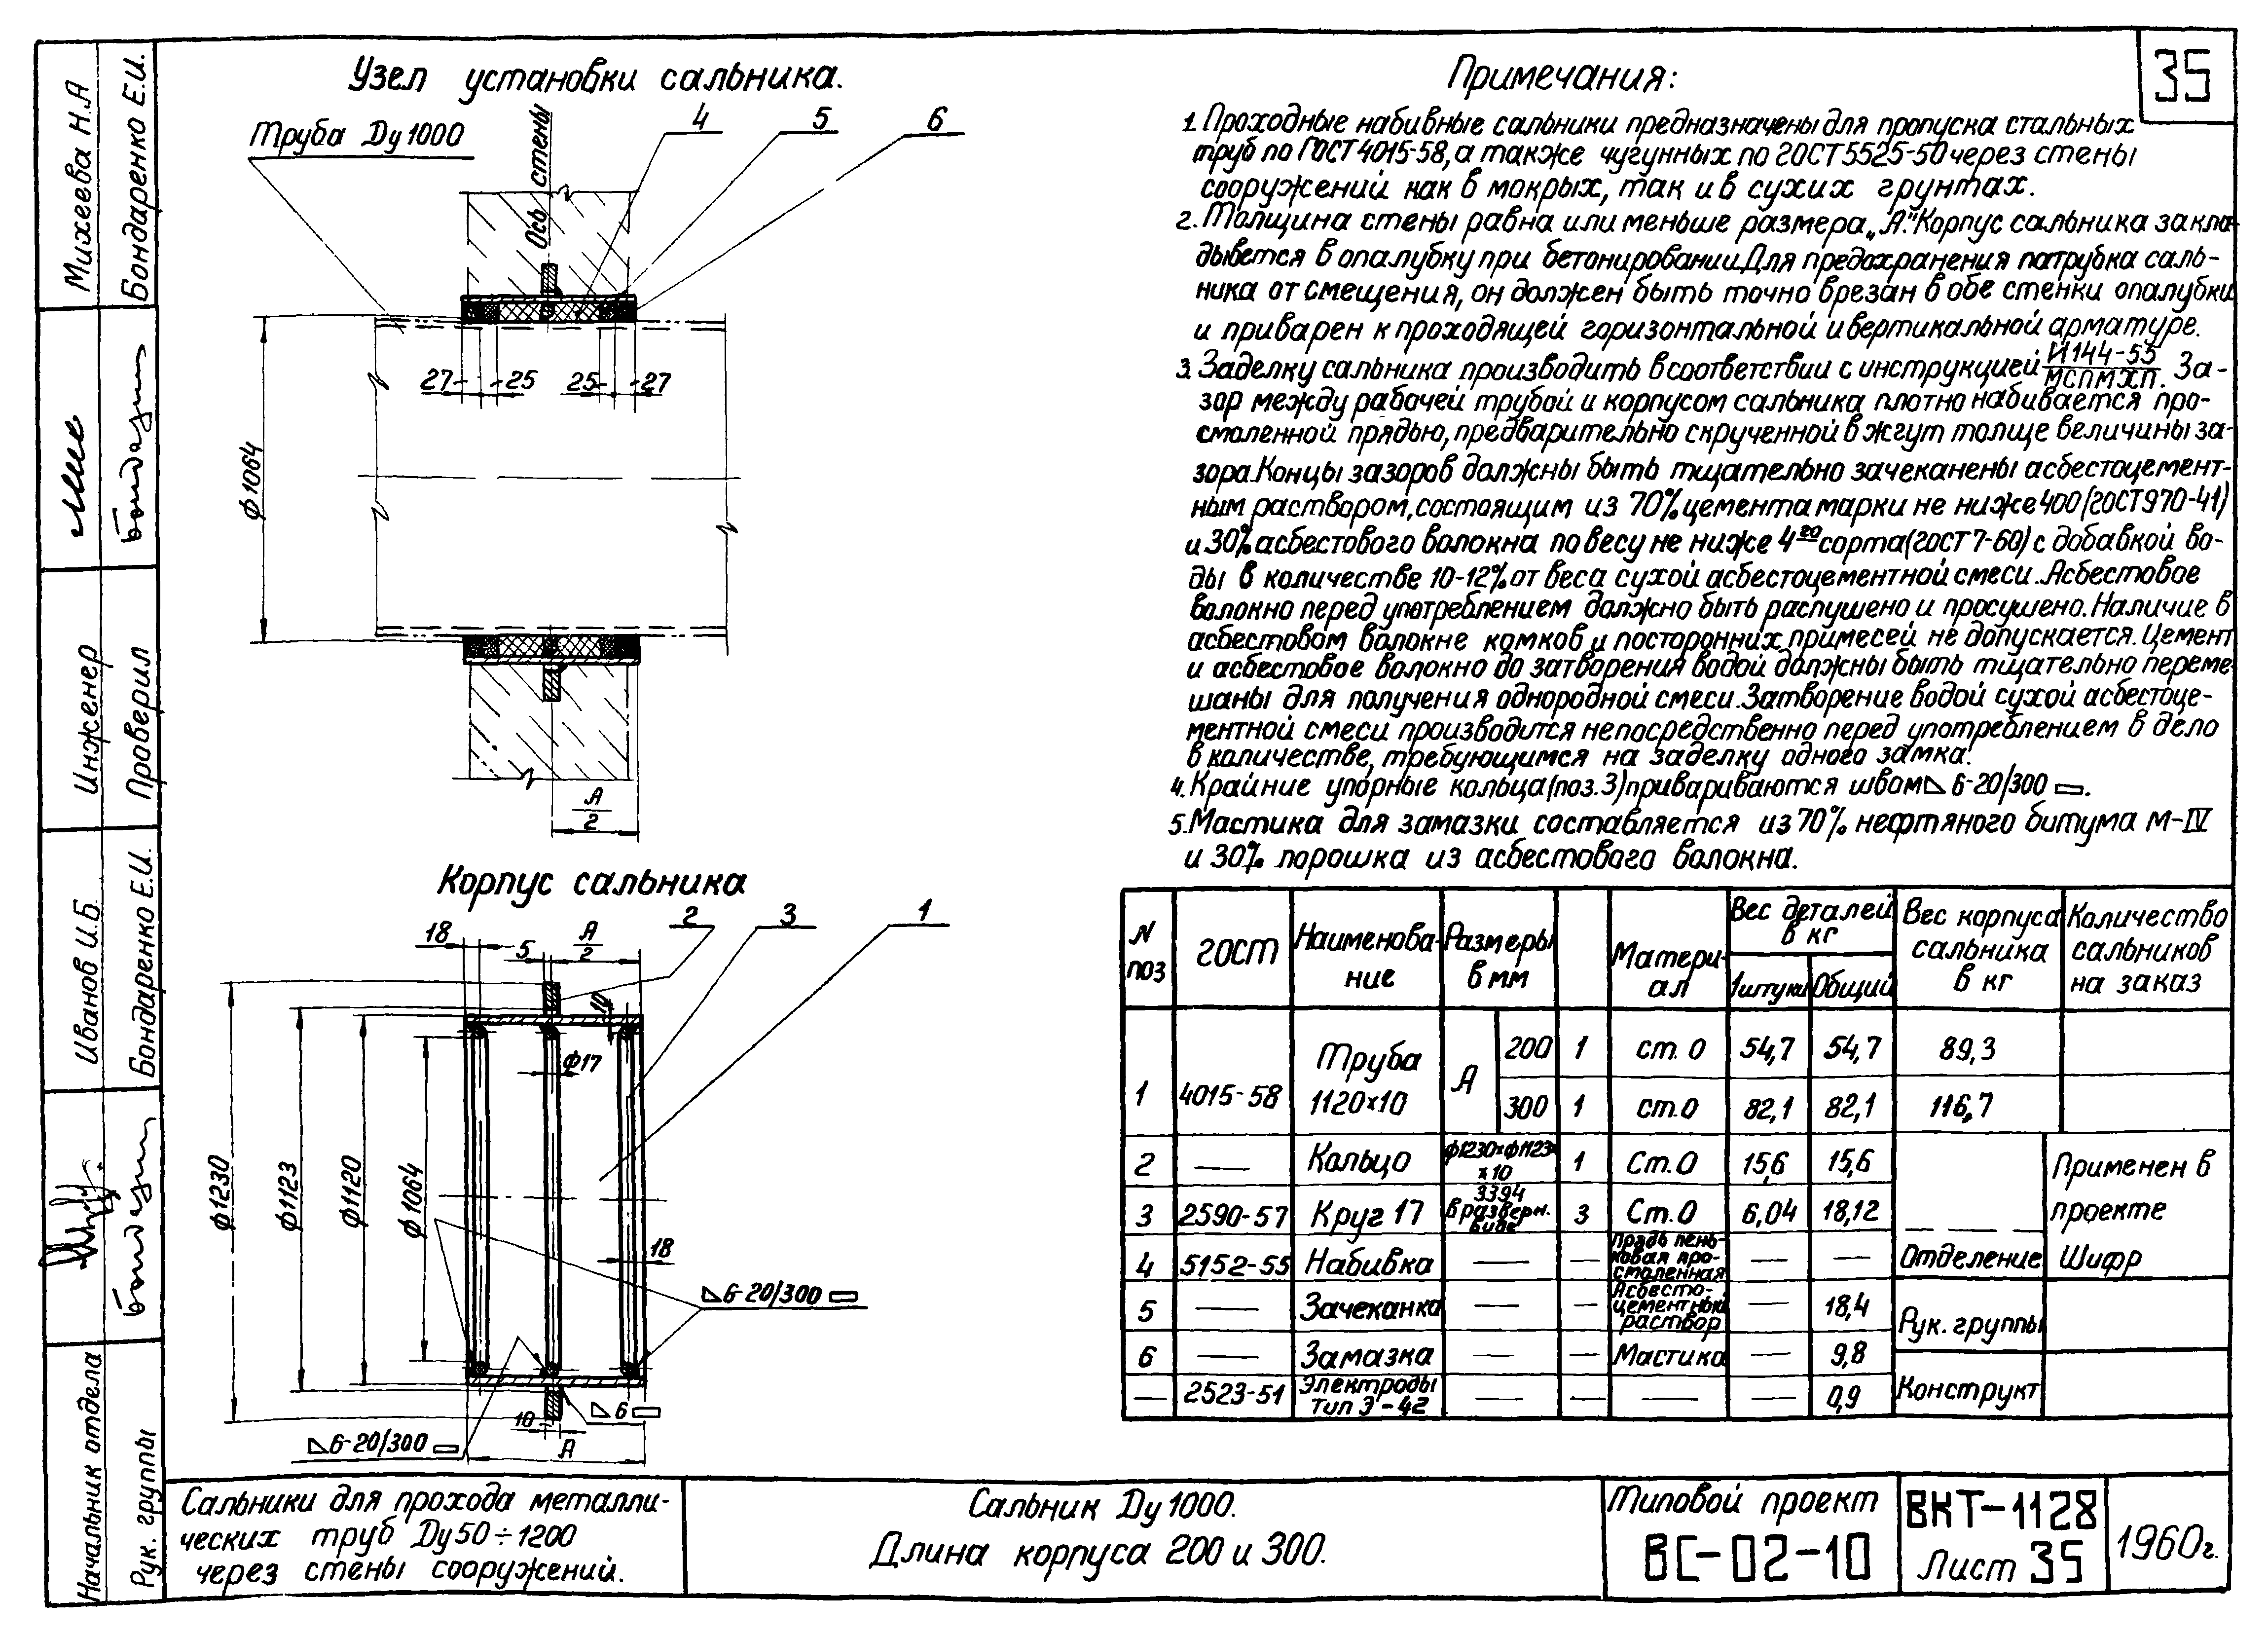 35
Узел установки сальника.
Труба Dу 1000
Ось стены
4
5
6
27
25
25
27
ф1064
А
2
Корпус сальника
18
5
А
2
2
3
1
10
ф17
ф1230
ф1123
ф1120
ф1064
18
6-20/300
6
10
А
6-20/300
Примечания:
1. Проходные набивные сальники предназначены для пропуска стальных
труб по ГОСТ 4015-58, а также чугунных по ГОСТ 5525-50 через стены
сооружений как в мокрых, так и в сухих грунтах.
2. Толщина стены равна или меньше размера „А". Корпус сальника закла-
дывется в опалубку при бетонировании. Для предохранения патрубка саль-
ника от смещения, он должен быть точно врезан в обе стенки опалубки
и приварен к проходящей горизонтальной и вертикальной арматуре.
3. Заделку сальника производить в соответствии с инструкцией И144-55 / МСПМХП. За-
зор между рабочей трубой и корпусом сальника плотно набивается про-
смоленной прядью, предварительно скрученной в жгут толще величины за-
зора. Концы зазоров должны быть тщательно зачеканены асбестоцемент-
ным раствором, состоящим из 70% цемента марки не ниже 400 (ГОСТ 970-41)
и 30% асбестового волокна по весу не ниже 4го сорта (ГОСТ 7-60) с добавкой во-
ды в количестве 10-12% от веса сухой асбестоцементной смеси. Асбестовое
волокно перед употреблением должно быть распушено и просушено. Наличие в
асбестовом волокне комков и посторонних примесей не допускается. Цемент
и асбестовое волокно до затворения водой должны быть тщательно переме-
шаны для получения однородной смеси. Затворение водой сухой асбестоце-
ментной смеси производится непосредственно перед употреблением в дело
в количестве, требующимся на заделку одного замка.
4. Крайние упорные кольца (поз.3) привариваются швом 6-20/300.
5. Мастика для замазки составляется из 70% нефтяного битума М-IV
и 30% порошка из асбестового волокна.
N поз | ГОСТ | Наименова-ние | Размеры в мм | Матери-ал | Вес деталей в кг | 1 штуки | Общий | Вес корпуса сальника в кг | Количество сальников на заказ
1 | 4015-58 | Труба 1120×10 | А | 200 | 1 | ст. 0 | 54,7 | 54,7 | 89,3
300 | 1 | ст. 0 | 82,1 | 82,1 | 116,7
2 | — | Кольцо | ф1230×ф1123××10 | 1 | Ст. 0 | 15,6 | 15,6
3 | 2590-57 | Круг 17 | 3394 в разверн. виде | 3 | Ст. 0 | 6,04 | 18,12
4 | 5152-55 | Набивка | — | — | Прядь пень-ковая про-смоленная | — | —
5 | — | Зачеканка | — | — | Асбесто-цементный раствор | — | 18,4
6 | — | Замазка | — | — | Мастика | — | 9,8
— | 2523-51 | Электроды тип Э-42 | — | — | — | — | 0,9
Применен в
проекте
Отделение
Шифр
Рук. группы
Конструкт
Сальники для прохода металли-
ческих труб Dу 50÷1200
через стены сооружений.
Сальник Dу 1000.
Длина корпуса 200 и 300.
Типовой проект
ВС-02-10
ВКТ-1128
Лист 35
1960г.
Начальник отдела
Иванов И.Б.
Рук. группы
Бондаренко Е.И.
Инженер
Михеева Н.А
Проверил
Бондаренко Е.И.